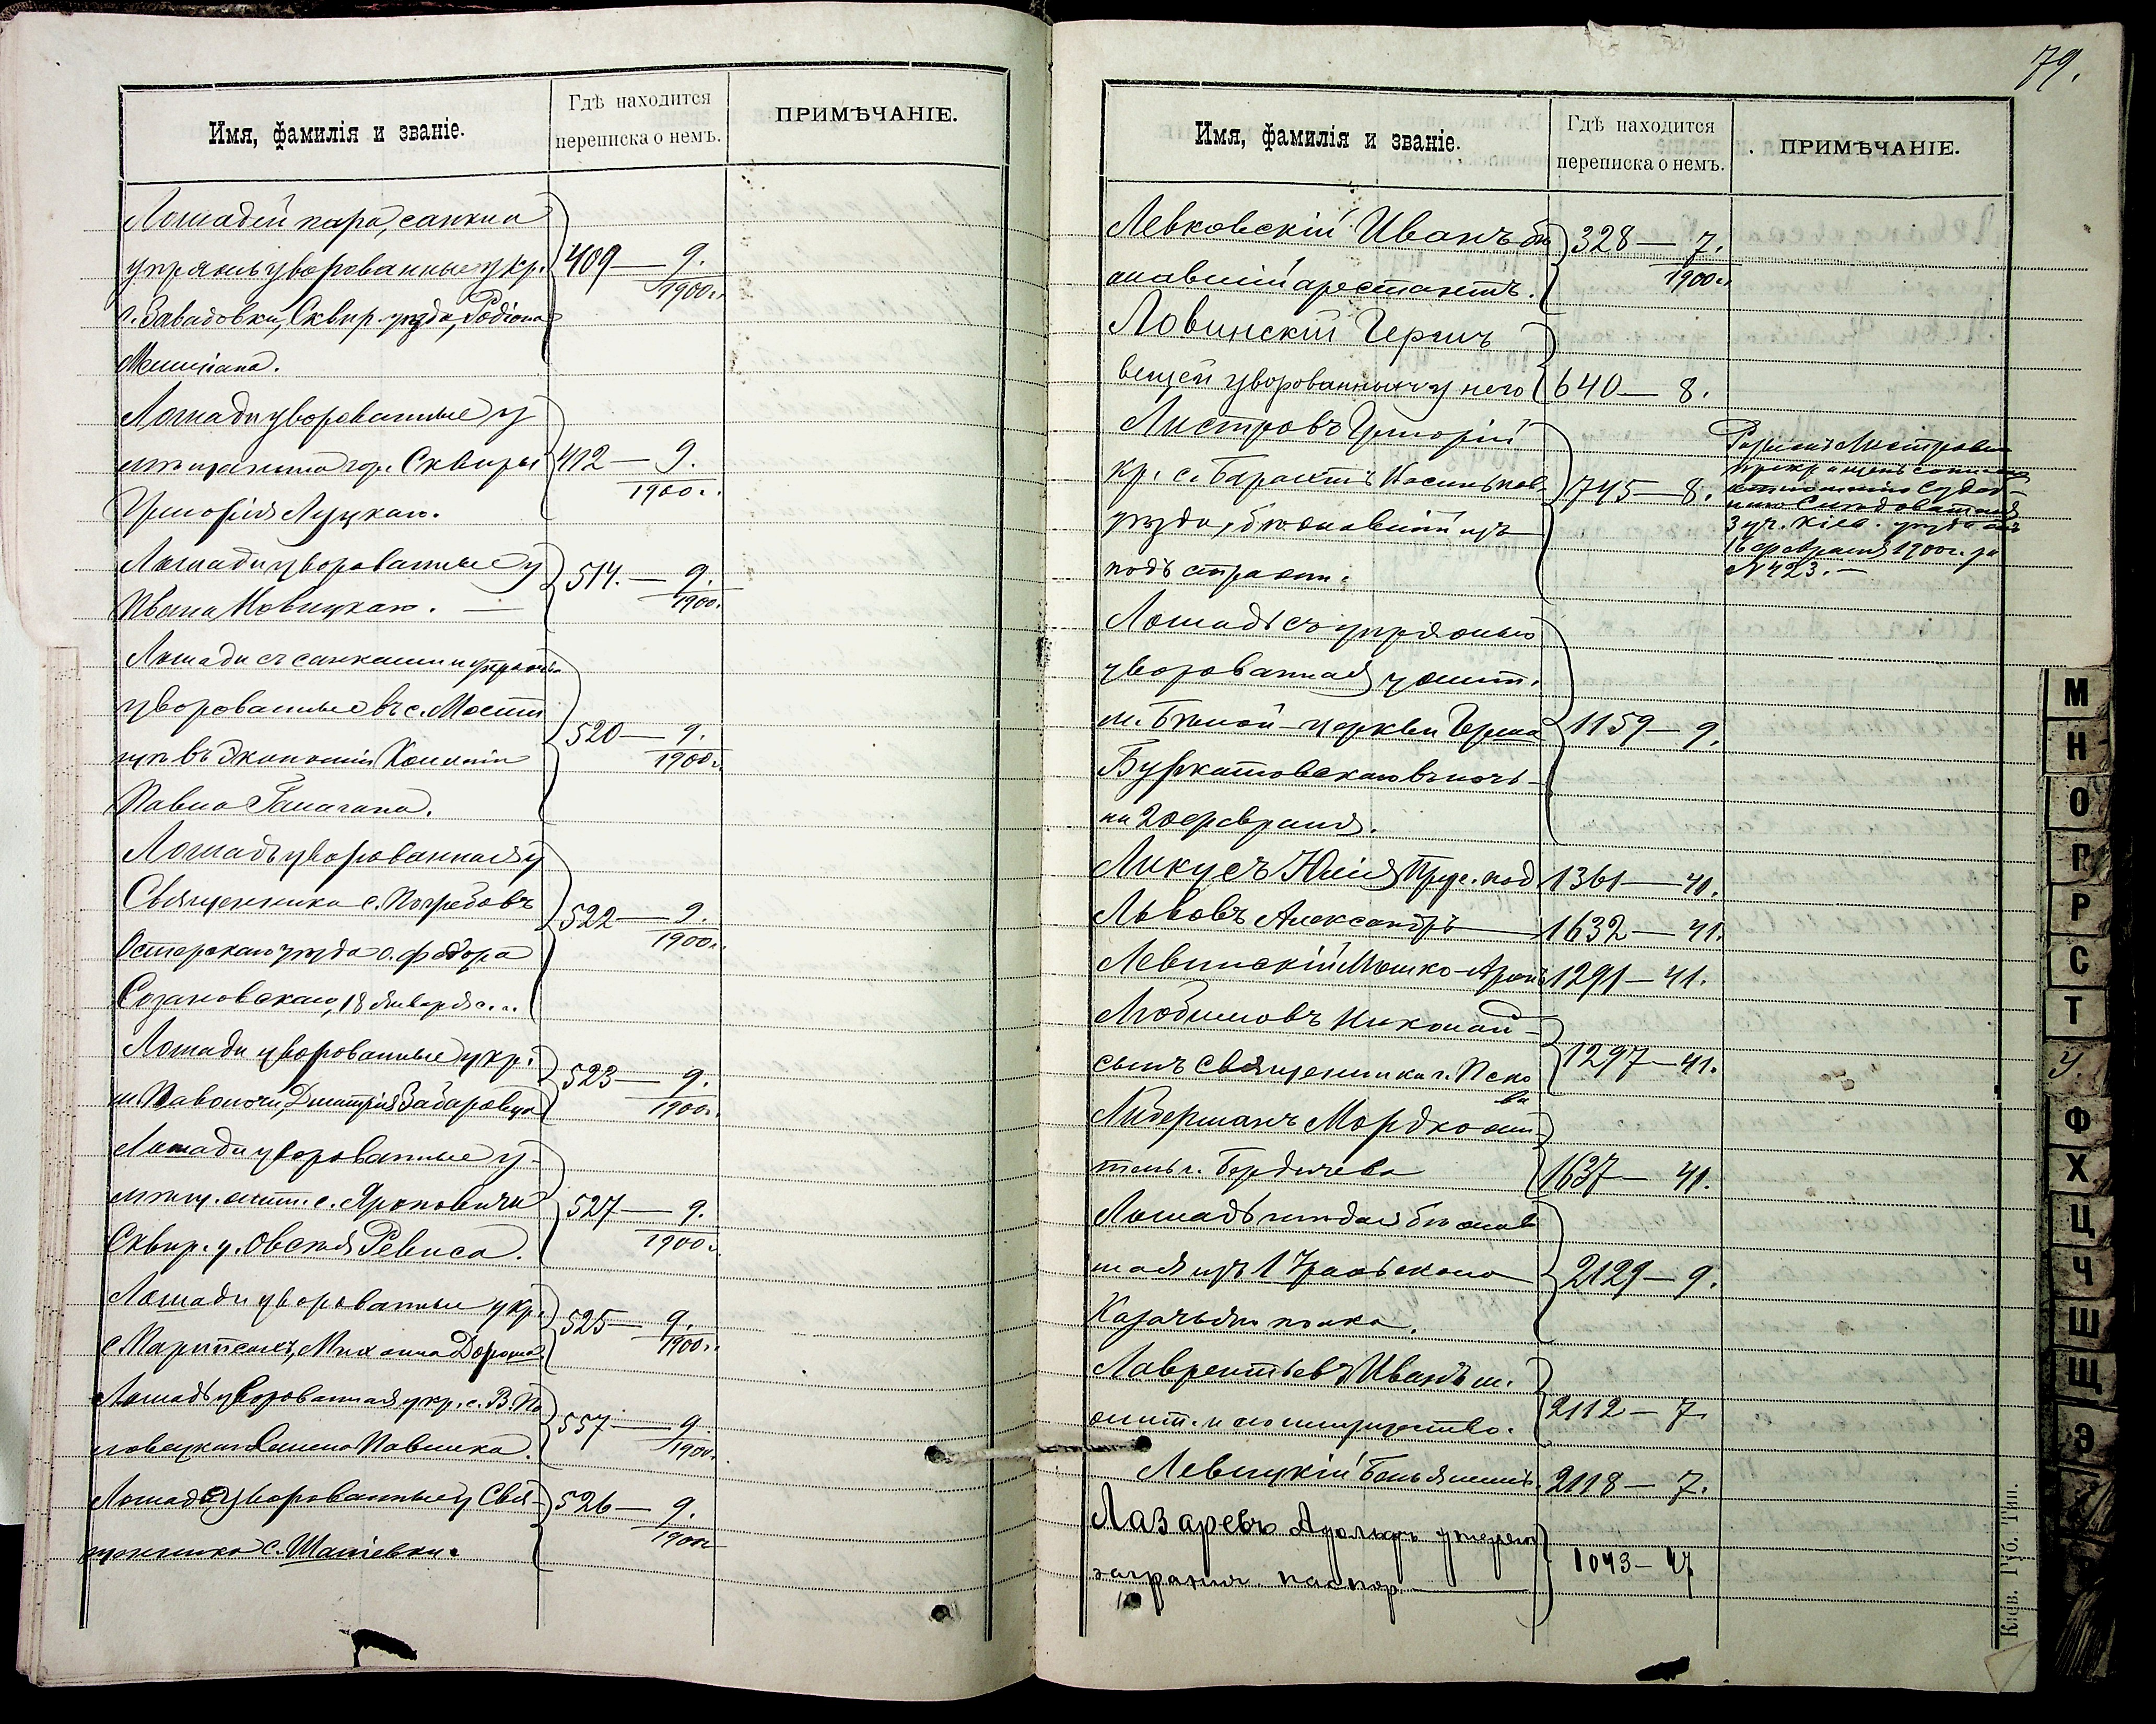 Имя, фамилія и званіе.
Гдѣ находится
переписка о немъ.
ПРИМѢЧАНІЕ.
Лошадей пара, санки и
упряжь уворованные у кр.
с. Завадовки, Сквир. уѣзда, Родіона
409 — 9.
1900 г.
Лошади уворованные у
мѣщанина гор. Сквиры
Григорія Луцкаго.
412 — 9.
1900 г.
Лошади уворованные у
Ивана Новицкаго. —
514. — 9.
1900.
Лошади съ санками и упряжью
уворованные въ с. Мости
щѣ въ Экономіи
Павла Галагана.
520 — 9.
1900 г.
Лошадь уворованная у
Священника с. Погребовъ
Остерскаго уѣзда о. Федора
Созановскаго, 18 января с. г.
522 — 9.
1900 г.
Лошади уворованные у кр.
м. Паволочи, Дмитрія
523 — 9.
1900 г.
Лошади уворованные у
мѣщ. жит. с. Яроповичи
Сквир. у. Овсея Ревиса.
527 — 9.
1900 г.
Лошади уворованные у кр.
с. Михаила
525 — 9.
1900 г.
Лошадь уворованная у кр. с. В. По
ловецкаго Павленка.
557 — 9.
1900 г.
Лошади уворованные у Свя-
щенника с. Шаліевки.
526 — 9.
1900 г.
79.
Имя, фамилія и званіе.
Гдѣ находится
переписка о немъ.
ПРИМѢЧАНІЕ.
Левковскій Иванъ бѣ
жавшій арестантъ.
328 — 7.
1900 г.
Ловинскій Гершъ
вещей уворованныхъ у него
640 — 8.
Листровъ Григорій
кр. с. Барахтъ Васильков.
уѣзда, бѣжавшій изъ
подъ стражи.
745 — 8.
Розыскъ Листрова
прекращенъ согласно
отношенію Судеб-
наго Слѣдователя
3 уч. Кіев. уѣзда отъ
16 февраля 1900 г. за
№ 423. —
Лошадь съ упряжью
уворованная у жит.
м. Бѣлой-церкви Герша
Буркатовскаго въ ночь
на 20 февраля.
1159 — 9.
Ликусъ Юлія Прус. под
1361 — 41.
Львовъ Александръ
1632 — 41.
Левинскій Мошко-Аронъ
1291 — 41.
Любимовъ Николай
сынъ священника г. Пско
ва
1297 — 41.
Либерманъ Мордко жи
тель г. Бердичева
1637 — 41.
Лошадь гнѣдая бѣжав
шая изъ 1 Уральскаго
Казачьяго полка.
2129 — 9.
Лаврентьевъ Иванъ
2112 — 7.
Левицкій Беньяминъ.
2118 — 7.
Лазаревъ Адольфъ утерян
загранич. паспор.
1043 — 47
М
Н
О
П
Р
С
Т
У.
Ф
Х
Ц
Ч
Ш
Щ
Э
Кіев. Губ. Тип.